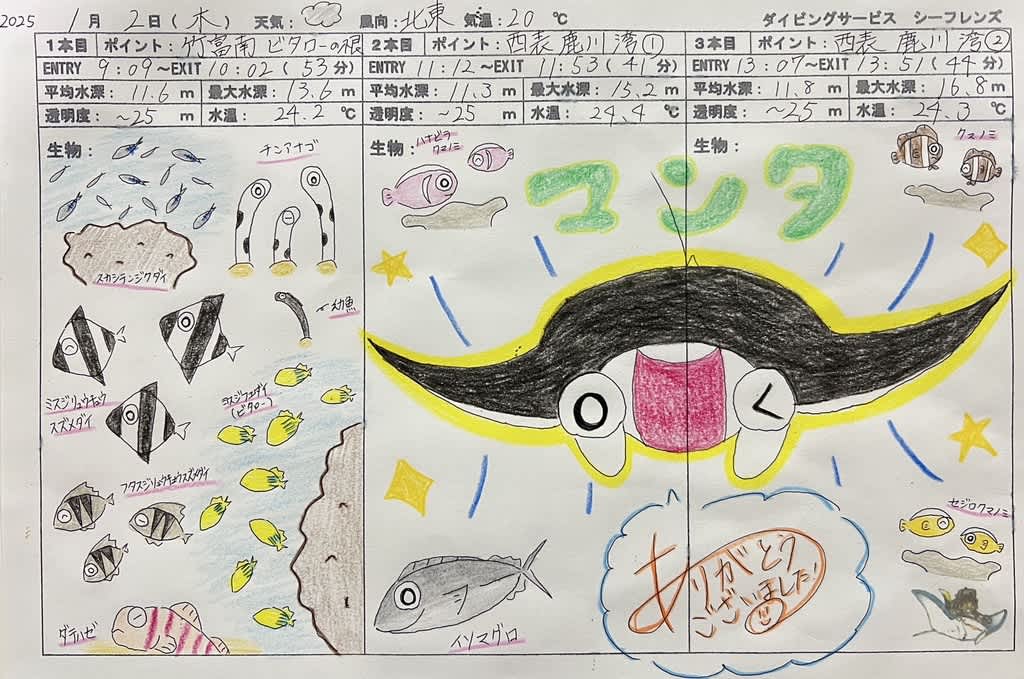 2025 1月 2日(木) 天気: 風向:北東 気温:20 ℃ ダイビングサービス シーフレンズ
1本目 ポイント:竹富南 ビタローの根
ENTRY 9:09～EXIT 10:02(53分)
平均水深: 11.6 m 最大水深: 13.6 m
透明度: ～25 m 水温: 24.2 ℃
生物:
チンアナゴ
スカシテンジクダイ
幼魚
ミスジリュウキュウ
スズメダイ
ヨスジフエダイ
(ビタロー)
フタスジリュウキュウスズメダイ
ダテハゼ
2本目 ポイント:西表 鹿川湾①
ENTRY 11:12～EXIT 11:53(41分)
平均水深: 11.3 m 最大水深: 15.2 m
透明度: ～25 m 水温: 24.4 ℃
生物:
ハナビラ
クマノミ
マンタ
イソマグロ
3本目 ポイント:西表 鹿川湾②
ENTRY 13:07～EXIT 13:51(44分)
平均水深: 11.8 m 最大水深: 16.8 m
透明度: ～25 m 水温: 24.3 ℃
生物:
クマノミ
セジロクマノミ
ありがとう
ございました!